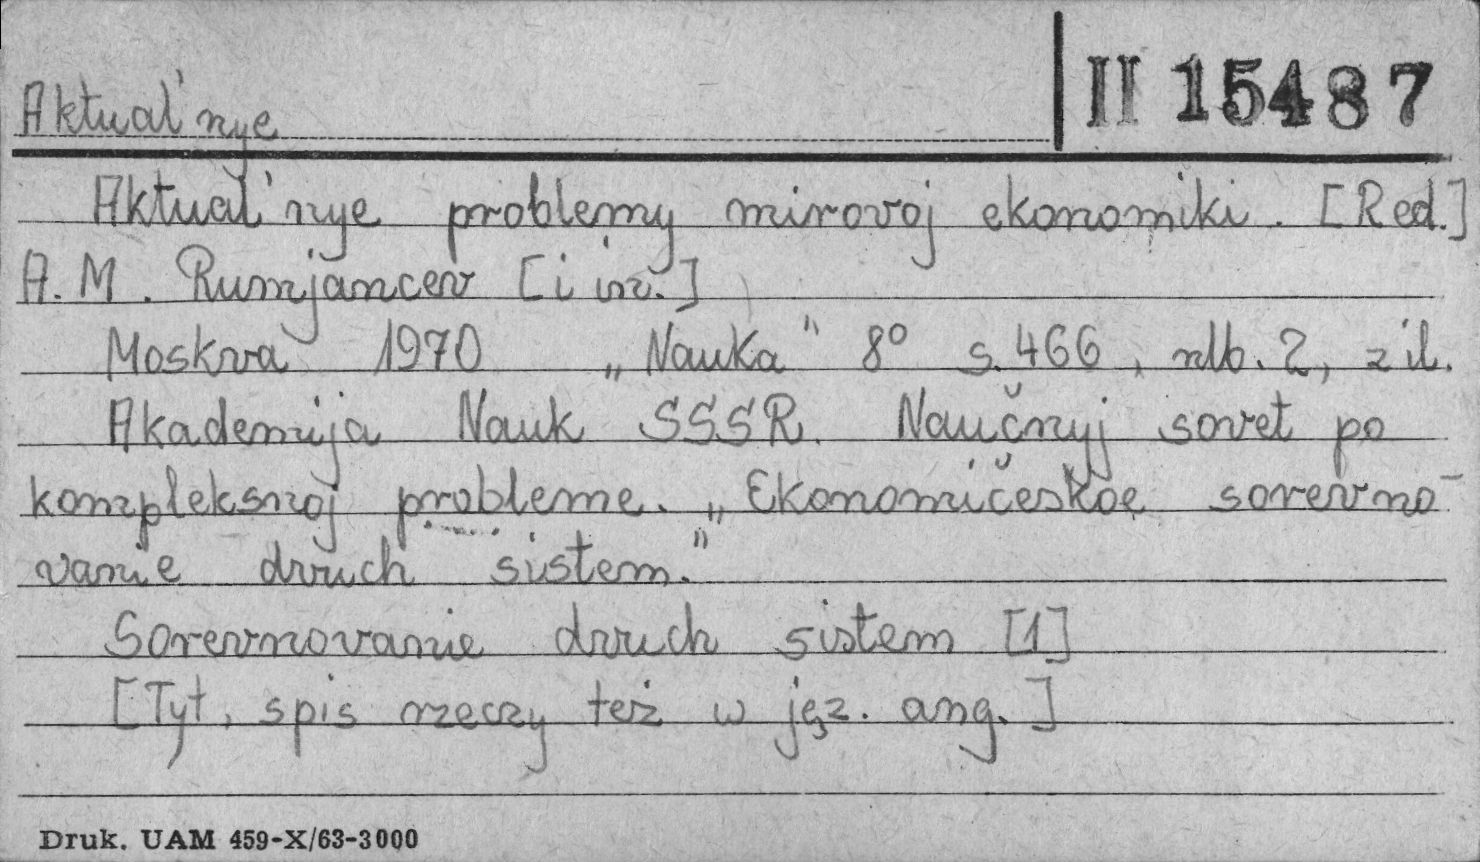 Aktual'nye
II 15487
Aktual'nye problemy mirovoj ekonomiki. [Red.]
A. M. Rumjancev [i in.]
Moskva 1970 „Nauka" 8° s. 466, nlb. 2, z il.
Akademija Nauk SSSR. Naučnyj sovet po
kompleksnoj probleme. „Ekonomičeskoe sorevno-
vanie dvuch sistem."
Sorevnovanie dvuch sistem [1]
[Tyt, spis rzeczy też w jęz. ang.]
Druk. UAM 459-X/63-3000